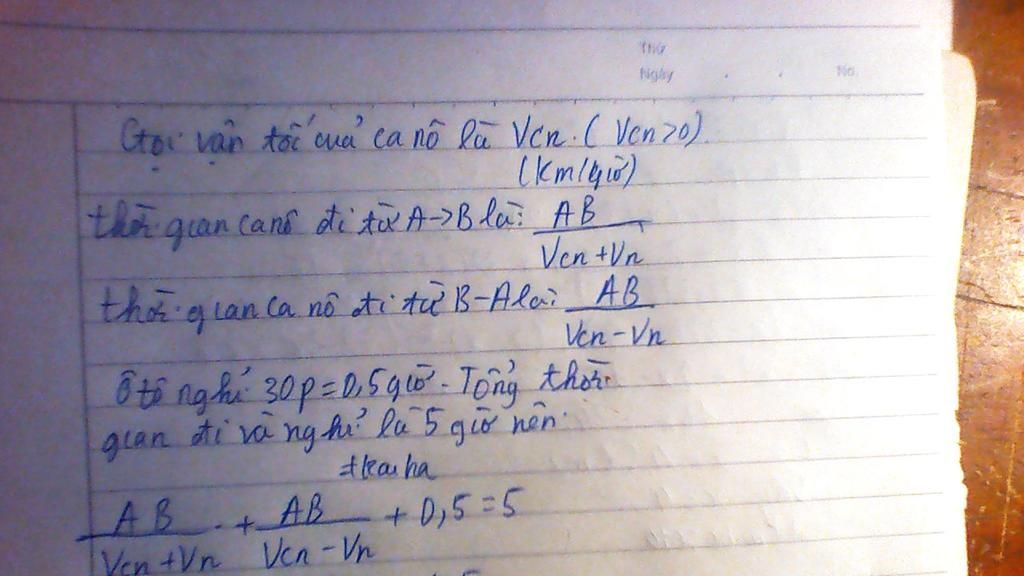 Thứ
Ngày . . No.
Gọi vận tốc của ca nô là Vcn. (Vcn>0)
(Km/giờ)
thời gian ca nô đi từ A->B là: AB / Vcn+Vn
thời gian ca nô đi từ B-A là: AB / Vcn-Vn
Ô tô nghỉ 30p=0,5giờ. Tổng thời
gian đi và nghỉ là 5 giờ nên
AB / Vcn+Vn + AB / Vcn-Vn + 0,5=5